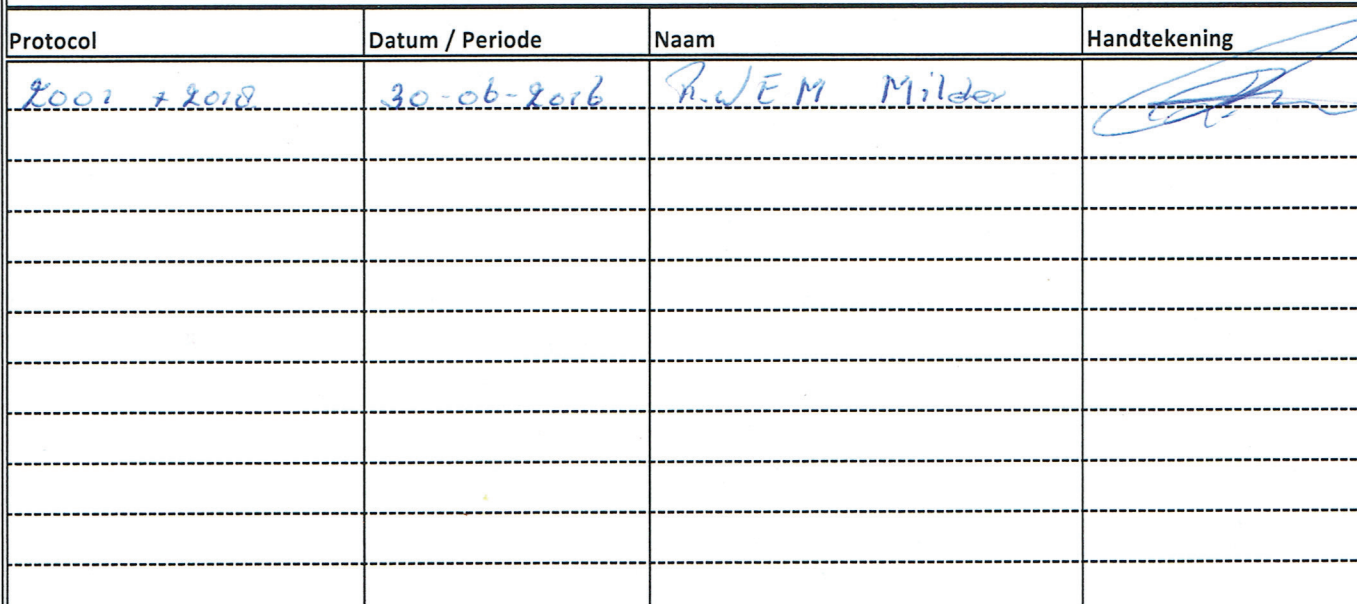 Protocol Datum / Periode Naam Handtekening
2001 + 2018 30-06-2016 R.W E M Milder